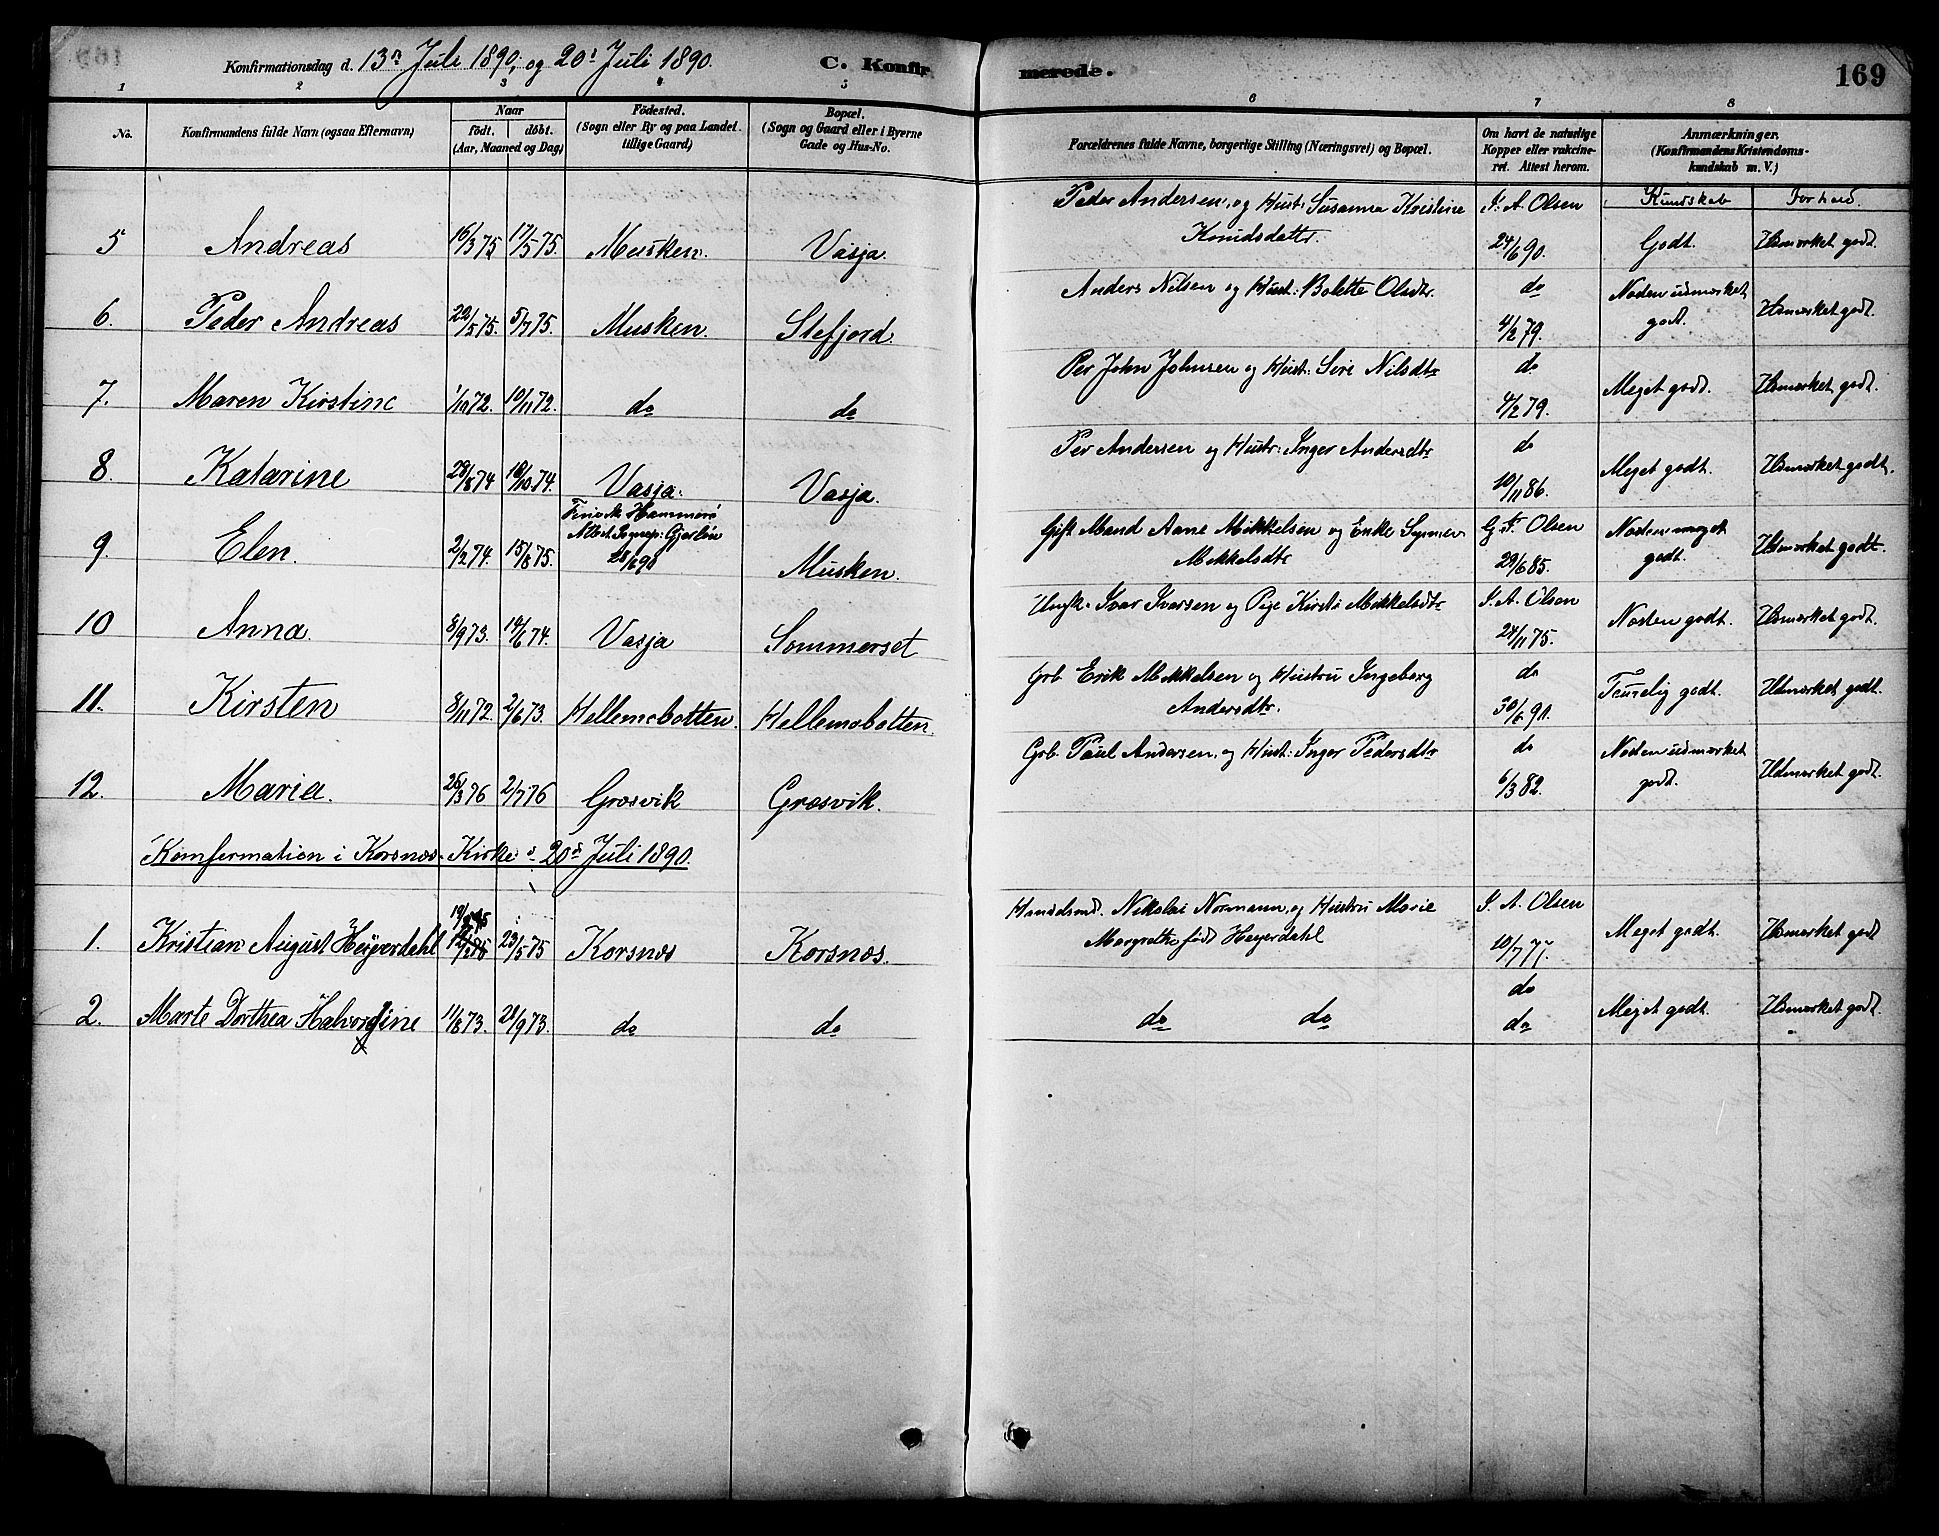 Konfirmationsdag d. 13de Juli 1890, og 20de Juli 1890. C. Konfirmerede. 169
1 2 3 4 5 6 7 8
No. Konfirmandens fulde Navn (ogsaa Efternavn) Naar født. døbt. (Aar, Maaned og Dag) Fødested. (Sogn eller By og paa Landet tillige Gaard) Bopæl. (Sogn og Gaard eller i Byerne Gade og Hus-No. Forældrenes fulde Navne, borgerlige Stilling (Næringsvei) og Bopæl. Om havt de naturlige Kopper eller vakcineret. Attest herom. Anmærkninger. (Konfirmandens Kristendomskundskab m. V.)
Kundskab Forhold.
5 Andreas 16/3 75 17/5 75. Musken. Vasja. Peder Andersen, og Hust: Susanna Kristine Knudsdatr. I. A. Olsen 24/6 90. Godt. Udmærket godt.
6. Peder Andreas 22/5 75. 5/7 75. Musken. Stefjord. Anders Nilsen og Hust: Bolette Olsdtr. do 4/2 79. Næsten udmærket godt. Udmærket godt.
7. Maren Kirstine 1/10 72. 10/11 72. do do Per John Johnsen og Hust: Sire Nilsdtr do 4/2 79. Meget godt. Udmærket godt.
8. Katarine 28/8 74 18/10 74. Vasja. Vasja. Per Andersen og Hustr: Inger Andersdtr do 10/11 86. Meget godt. Udmærket godt.
9 Elen. 2/2 74. 15/8 75. Hammerø 28/6 90 Musken. Gift Mand Aane Mikkelsen og Enke Mikkelsdtr Olsen 29/6 85. Næsten meget godt. Udmærket godt.
10 Anna. 8/9 73. 14/6 74. Vasja Sommerset Ungk. Ivar Ivarsen og Pige Kirsti Mikkelsdtr I. A. Olsen 24/11 75. Næsten godt. Udmærket godt.
11. Kirsten 8/11 72. 2/6 73. Hellemobotten. Hellemobotten. Grb. Erik Mikkelsen og Hustru Ingeborg Andersdtr. do 30/6 90. Temelig godt. Udmærket godt.
12. Maria. 26/3 76 2/7 76 Græsvik Græsvik. Grb. Paul Andersen, og Hust: Inger Pedersdtr do 6/3 82. Næsten udmærket godt. Udmærket godt.
Konfermation i Korsnæs Kirke d 20de Juli 1890.
1. Kristian August Heyerdahl 23/5 75 Korsnæs Korsnæs. Handelsmd. Nikolai Normann, og Hustru Marie Margrethe født Heyerdahl I. A. Olsen 10/7 77. Meget godt. Udmærket godt
2. Marte Dorthea Halvordine 11/8 73. 21/9 73. do do do do do do Meget godt. Udmærket godt.